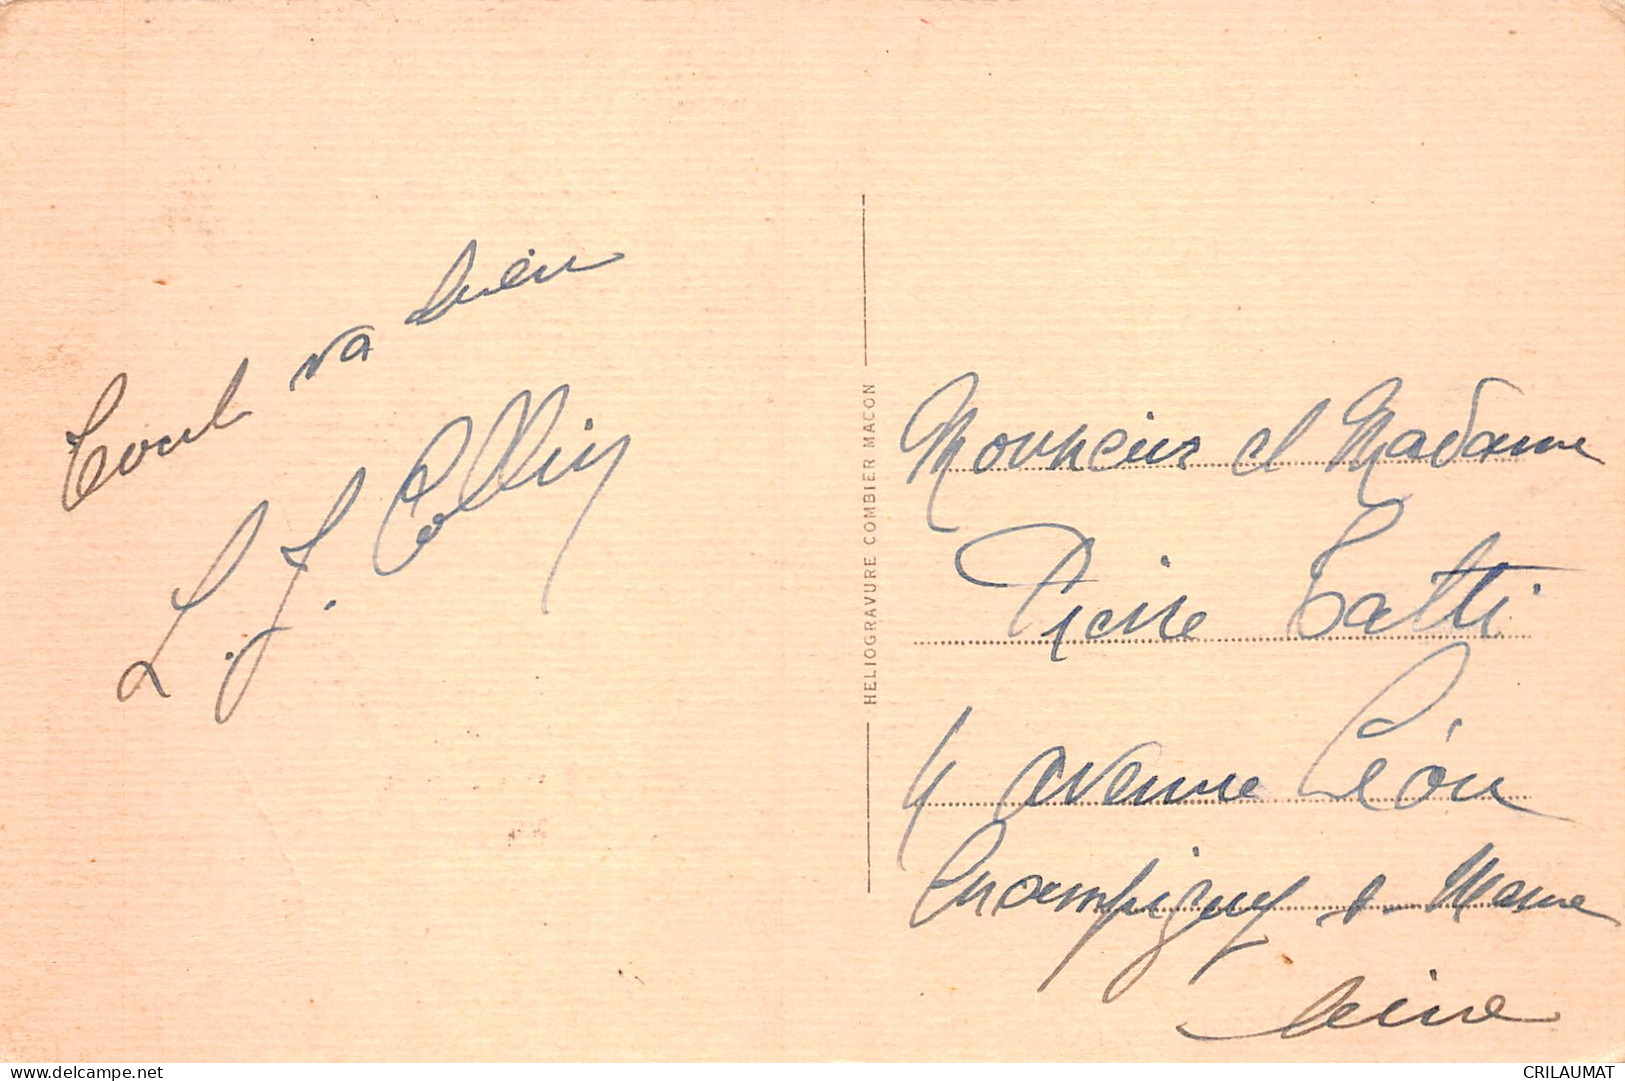 Tout va bien
L. J. Collin
HELIOGRAVURE COMBIER MACON
Monsieur et Madame
Pierre Batti
4 avenue Léon
Champigny s- Marne
Seine
www.delcampe.net
CRILAUMAT